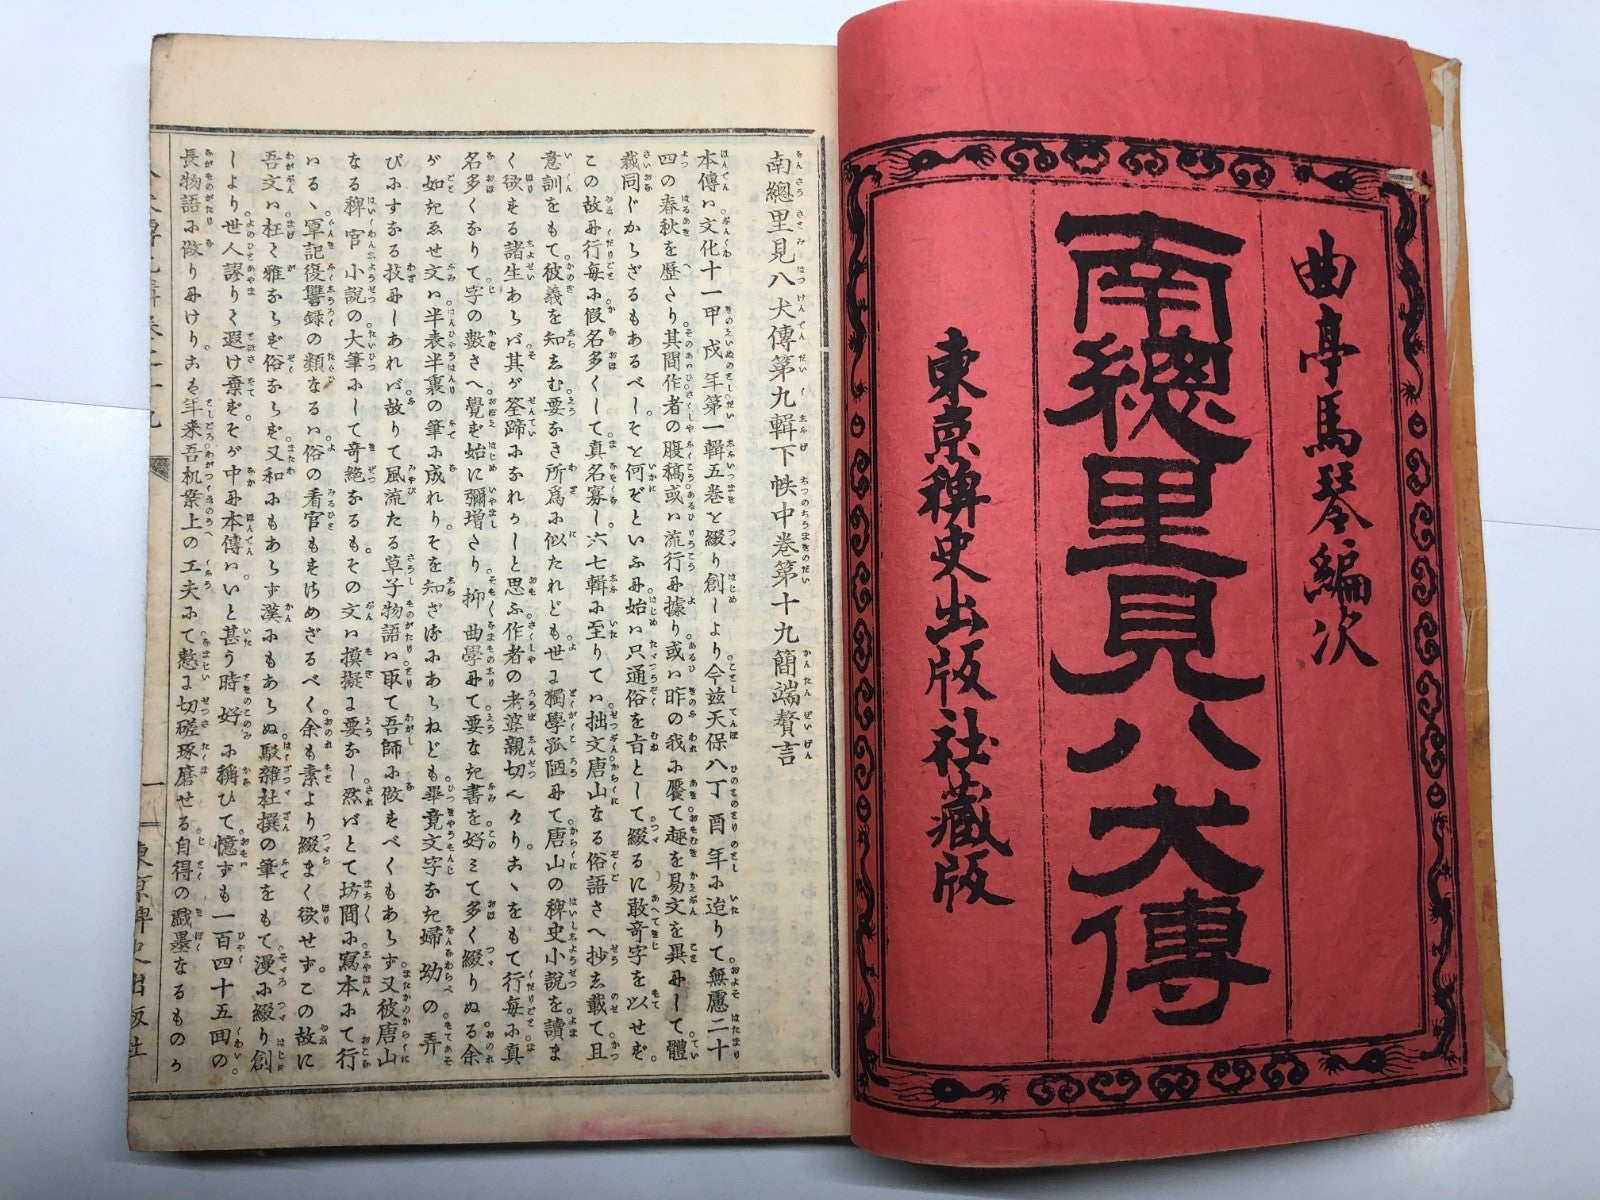 曲亭馬琴編次
南總里見八犬傳
東京稗史出版社藏版
南總里見八犬傳第九輯下帙中卷第十九簡端贅言
本傳ハ文化十一甲戌年第一輯五卷を綴り創しより今玆天保八丁酉年に迨りて無慮二十
四の春秋を歷たり其間作者の腹稿或ハ流行に據り或ハ昨の我に饜て趣を易文を異にして體
裁同じからざるもあるべしそを何ぞといふに始ハ只通俗を旨として綴るに敢奇字を以せず
この故に行每に假名多くして眞名寡し六七輯に至りてハ拙文唐山なる俗語さへ抄し載て且
意訓をもて彼義を知しむ要なき所爲に似たれども世に獨學孤陋にて唐山の稗史小說を讀ま
く欲する諸生あらバ其が筌蹄になれかしと思ふ作者の老婆親切へたりこゝをもて行每に眞
名多くなりて字の數さへ覺ず始に彌增たり抑曲學にて要なき書を好みて多く綴りぬる余
が如きゑせ文ハ半表半裏の筆に成れりそを知ざるにあらねども畢竟文字なき婦幼の弄
びにすなる技にしあれバ故りて風流たる草子物語に取て吾師に做すべくもあらず又彼唐山
なる稗官小說の大筆にして奇絕なるもその文ハ摸擬に要なし然バとて坊間に寫本にて行
いるゝ軍記復讐錄の類なるハ俗の看官もすさめざるべく余も素より綴まく欲せずこの故に
吾文ハ枉て雅ならず俗ならず又和にもあらず漢にもあらぬ駁雜杜撰の筆をもて漫に綴り創
しより世人謬りて遐け棄ずそが中に本傳ハいと甚う時好に稱ひて憶ずも一百四十五回の
長物語に做りにけりこも年來吾机案上の工夫にて憖に切磋琢磨せる自得の戲墨なるものか
東京稗史出版社